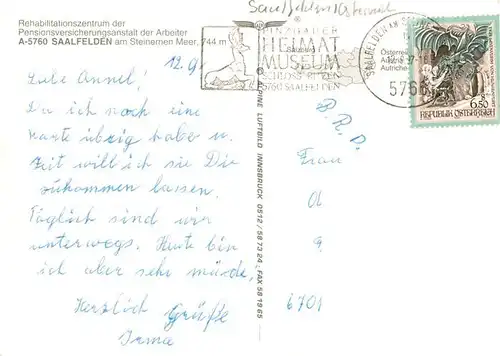 Saalfelden Österreich
Rehabilitationszentrum der
Pensionsversicherungsanstalt der Arbeiter
A-5760 SAALFELDEN am Steinernen Meer, 744 m
12.9.
PINZGAUER
HEIMAT
MUSEUM
SCHLOSS RITZEN
5760 SAALFELDEN
SAALFELDEN AM
5760
Österreich
Autriche
6.50
REPUBLIK ÖSTERREICH
Liebe Annel!
Da ich noch eine
Karte übrig habe u.
Zeit will ich sie Dir
zukommen lassen.
Täglich sind wir
unterwegs. Heute bin
ich aber sehr müde,
Herzlich Grüße
Irma
ALPINE LUFTBILD INNSBRUCK 0512/58 73 24 - FAX 58 18 65
B.R.D.
Frau
6701